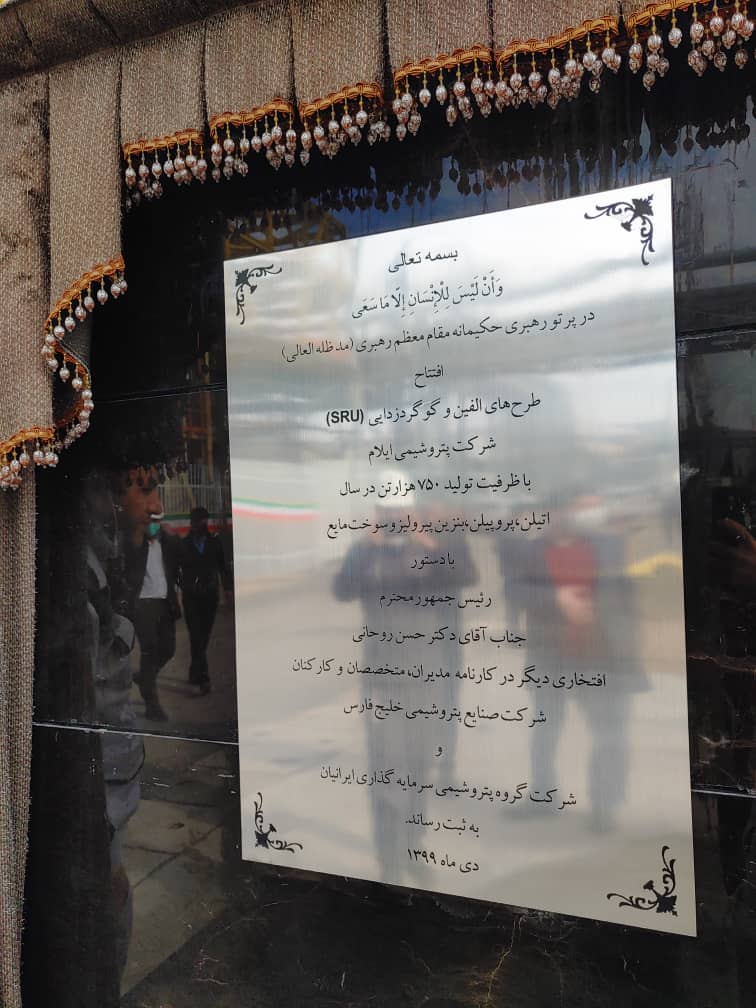 بسمه تعالی
وَأَنْ لَیْسَ لِلْإِنْسَانِ إِلَّا مَا سَعَی
در پرتو رهبری حکیمانه مقام معظم رهبری (مد ظله العالی)
افتتاح
طرح‌های الفین و گوگردزدایی (SRU)
شرکت پتروشیمی ایلام
با ظرفیت تولید ۷۵۰ هزار تن در سال
اتیلن،پروپیلن،بنزین پیرولیز و سوخت مایع
با دستور
رئیس جمهور محترم
جناب آقای دکتر حسن روحانی
افتخاری دیگر در کارنامه مدیران،متخصصان و کارکنان
شرکت صنایع پتروشیمی خلیج فارس
و
شرکت گروه پتروشیمی سرمایه گذاری ایرانیان
به ثبت رساند.
دی ماه ۱۳۹۹